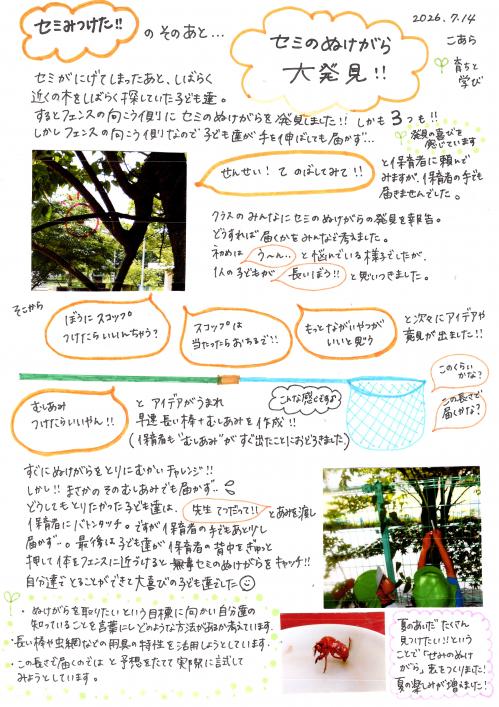 セミみつけた!!
のそのあと...
2026.7.14
こあら
セミのぬけがら
大発見!!
育ちと
学び
セミがにげてしまったあと、しばらく
近くの木をしばらく探していた子ども達。
するとフェンスの向こう側にセミのぬけがらを発見しました!! しかも3つも!!
しかしフェンスの向こう側なので子ども達が手を伸ばしても届かず...
発見の喜びを
感じています
せんせい!て のばしてみて!!
と保育者に頼んで
みますが、保育者の手も
届きませんでした。
クラスのみんなにセミのぬけがらの発見を報告。
どうすれば届くかをみんなで考えました。
初めは う〜ん.. と悩んでいる様子でしたが、
1人の子どもが 長いぼう!! と思いつきました。
そこから
ぼうにスコップ
つけたらいいんちゃう?
スコップは
当たったらおちるで!!
もっとながいやつが
いいと思う
と次々にアイデアや
意見が出ました!!
このくらい
かな?
この長さで
届くかな?
むしあみ
つけたらいいやん!!
と アイデアがうまれ
早速長い棒+むしあみを作成!!
(保育者も"むしあみ"がすぐ出たことにおどろきました)
こんな感じですよ
すぐにぬけがらをとりにむかいチャレンジ!!
しかし!! まさかのそのむしあみでも届かず..
どうしてもとりたかった子ども達は、 先生てつだって!! とあみを渡し
保育者にバトンタッチ。ですが保育者の手もあと少し
届かず..。最後は子ども達が保育者の背中をぎゅっと
押して体をフェンスに近づけると無事セミのぬけがらをキャッチ!!
自分達でとることができて大喜びの子ども達でした
・ぬけがらを取りたいという目標に向かい自分達の
知っていることを言葉にしどのような方法があるか考えています。
・長い棒や虫網などの用具の特性を活用しようとしています。
・この長さで届くのでは と予想をたてて実際に試して
みようとしています。
夏のあいだ たくさん
見つけたい!!という
ことで「せみのぬけ
がら」表をつくりました!
夏の楽しみが増えました!